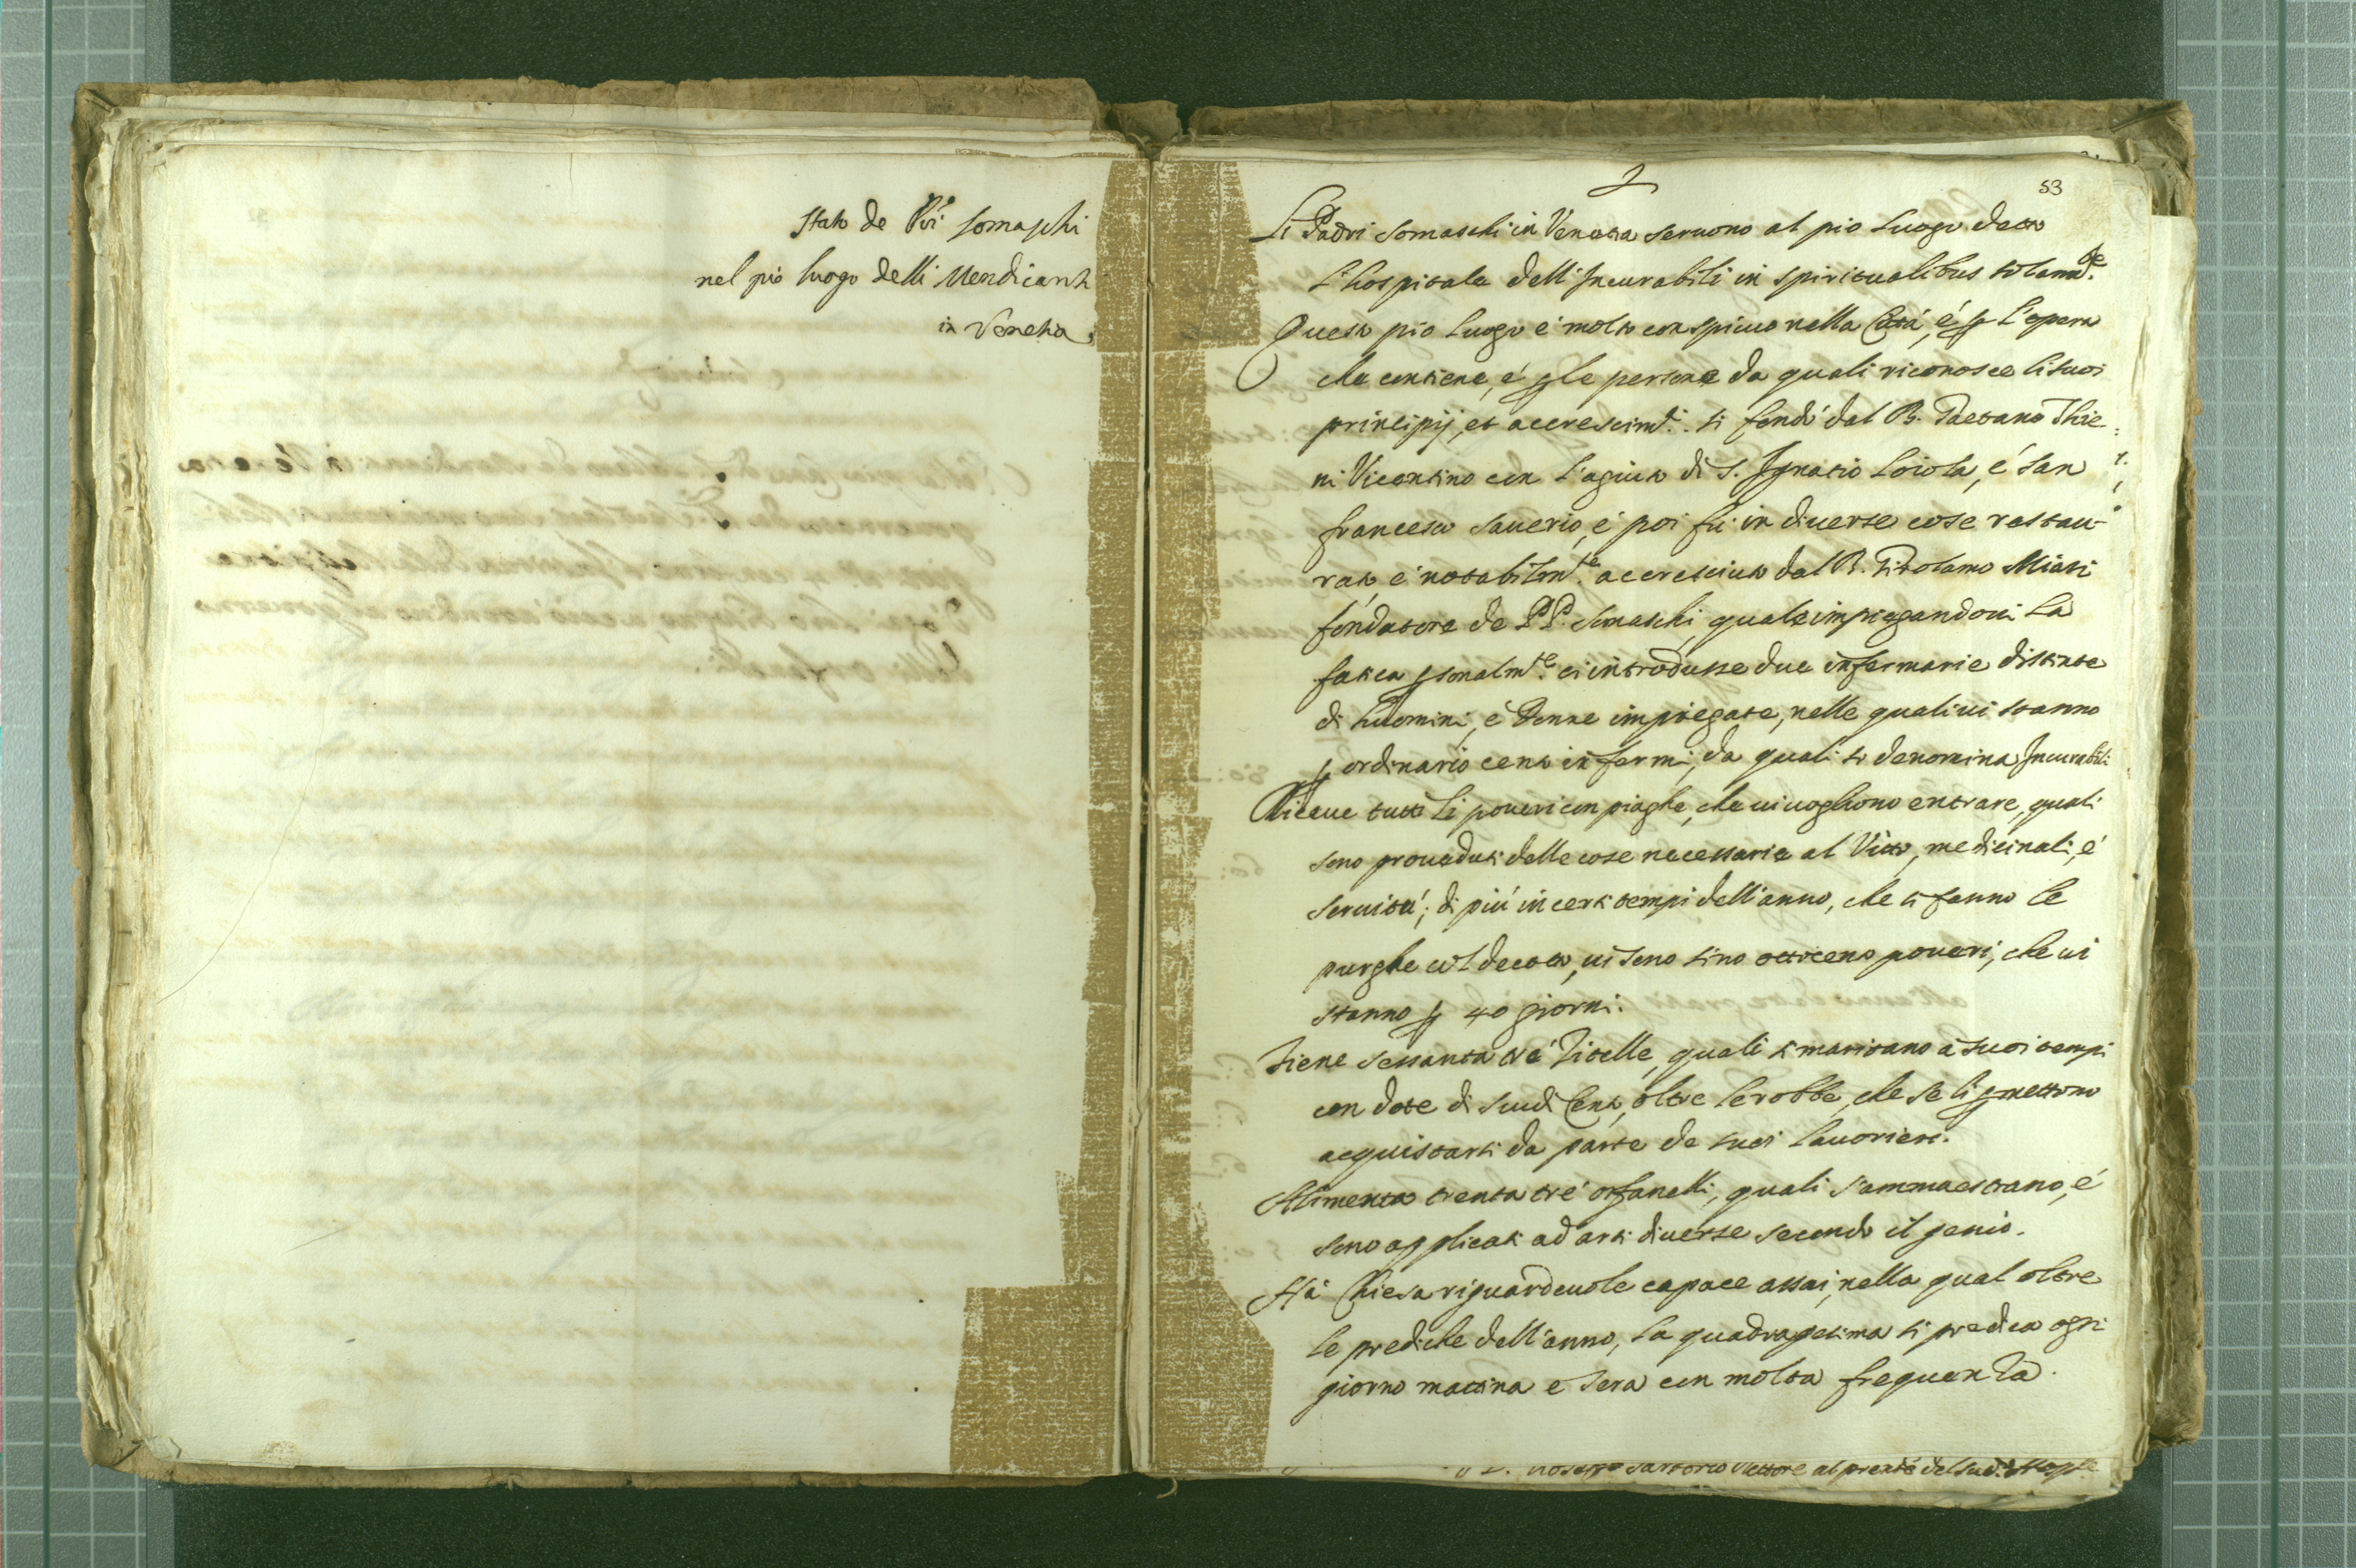 Stato de Pri Somaschi
nel pio luogo delli Mendicanti
in Venetia
53
Li Padri Somaschi in Venetia seruono al pio luogo detto
l'hospitale dell'Incurabili in spiritualibus tolamte.
Questo pio luogo è molto conspicuo nella Città, é p l'opera
che contiene, é p le persone da quali riconosce li suoi
principij, et accrescimti. Si fondò dal B. Gaetano Thie:
ni Vicentino con l'agiuto di S. Ignatio Loiola, é San
francesco Sauerio, é poi fù in diuerse cose restau-
rato é notabilmte. accresciuto dal B. Girolamo Miani
fondatore de PP. Somaschi, quale impiegandoui la
fatica psonalmte. ci introdusse due infermarie distinte
di huomini, é Donne impiegate, nelle quali ui stanno
p ordinario cento infermi, da quali si denomina Incurabili
Riceue tutti li poueri con piaghe, che ui uogliono entrare, quali
sono proueduti delle cose necessarie al Vitto, medicinali, é
seruitù; di più in certi tempi dell'anno, che si fanno le
purghe col decotto, ui sono sino ottocento poueri, che ui
stanno p 40 giorni.
Tiene sessanta tré Zitelle, quali si maritano à suoi tempi
con dote di scudi Cento, oltre le robbe, che se li pmettono
acquistarsi da parte de suoi lauorieri.
Alimenta trenta tré orfanelli, quali s'ammaestrano, é
sono applicati ad arti diuerse secondo il genio.
Hà Chiesa riguardeuole capace assai, nella qual oltre
le prediche dell'anno, la quadragesima si predica ogni
giorno mattina e sera con molta frequenza.
Sartorio Rettore al prente del sud. Hosple